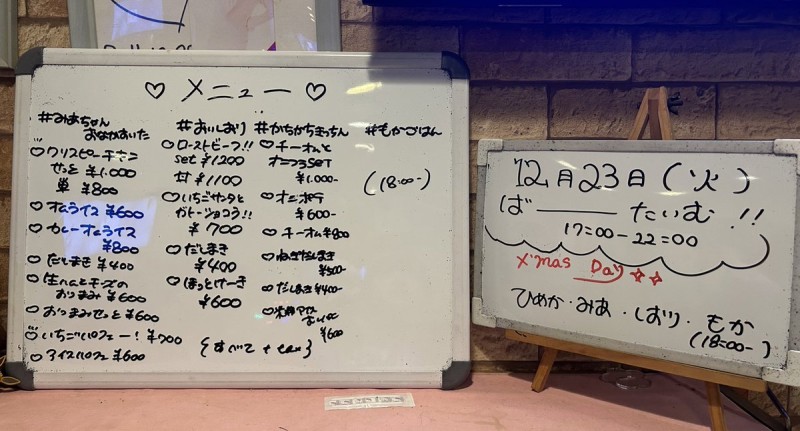 ♡ メニュー ♡
#みあちゃん
おなかあいた
♡クリスピーチキン
せっと ¥1.000
単 ¥800
♡オムライス ¥600
♡カレーオムライス
¥800
♡だしまき ¥400
♡生ハムとチーズの
おつまみ ¥600
♡おつまみせっと ¥600
♡いちごパフェー! ¥700
♡アイスパフェ ¥600
#おいしおり
♡ローストビーフ!!
set ¥1200
丼 ¥1100
♡いちごサンタと
ガトーショコラ!!
¥700
♡だしまき
¥400
♡ほっとけーき
¥600
{すべて + tax}
#かちかちきっちん
♡チーオムと
オニフラSET
¥1.000-
♡オニポテ
¥600-
♡チーオム ¥800
♡ねぎだしまき
¥500-
♡だしまき ¥400-
¥600
#もかごはん
(18:00-)
12月23日(火)
ば――たいむ!!
17:00-22:00
X'mas Day☆☆
ひめか・みあ・しおり・もか
(18:00-)